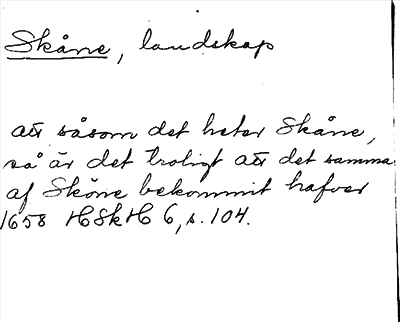 Skåne, landskap
att såsom det heter Skåne,
så är det troligt att det samma
af Skåne bekommit hafver
1658 HSkH 6, s. 104.